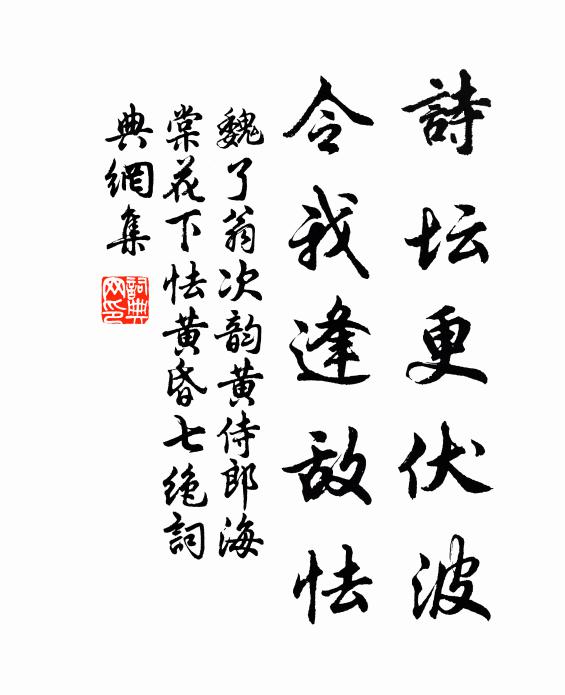 詩坛更伏波
令我逢敌怯
魏了翁次韵黄侍郎海
棠花下怯黄昏七绝詞
典網集
詞典網印